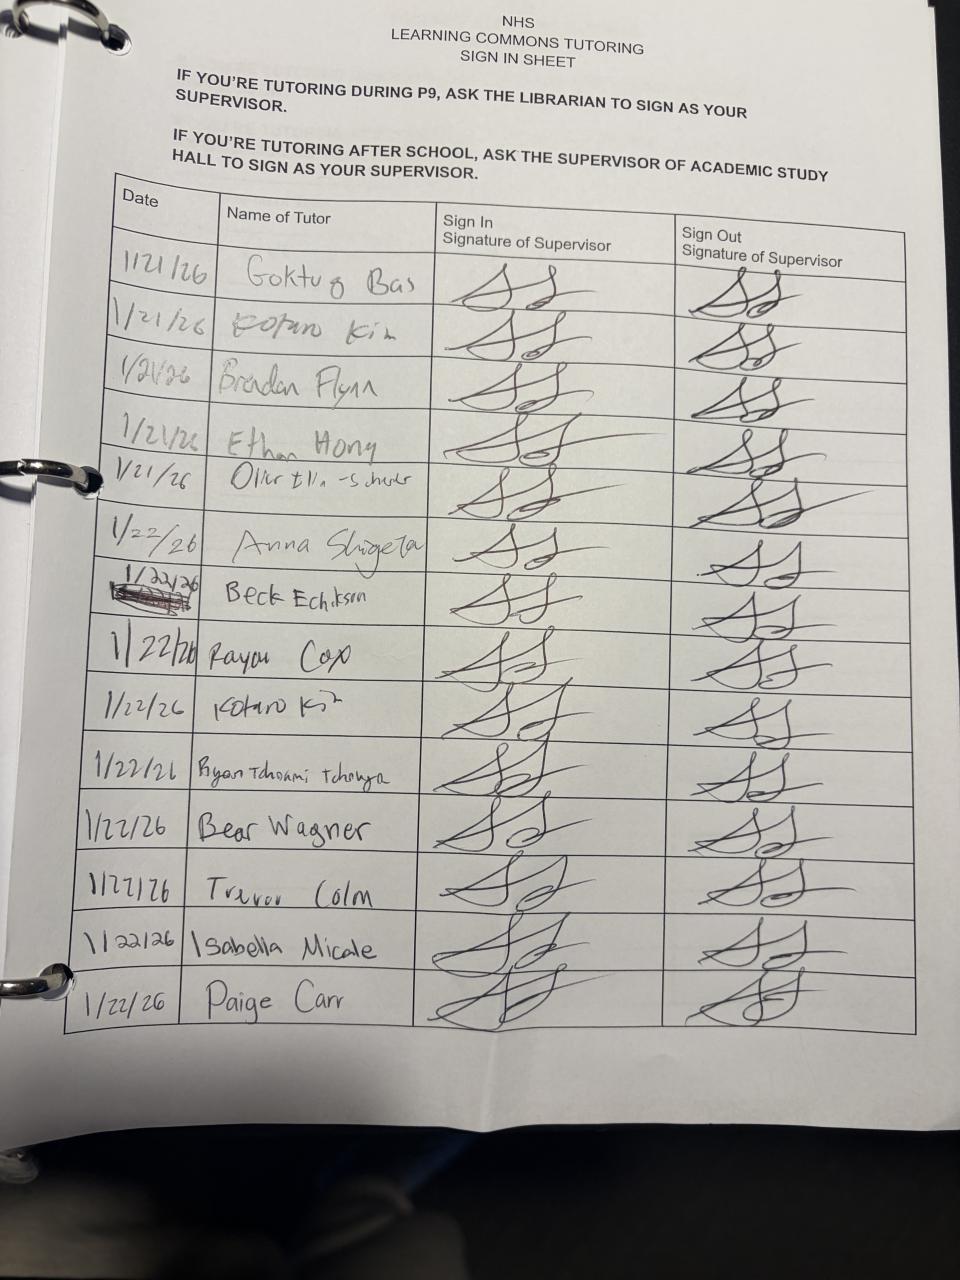 NHS
LEARNING COMMONS TUTORING
SIGN IN SHEET
IF YOU'RE TUTORING DURING P9, ASK THE LIBRARIAN TO SIGN AS YOUR
SUPERVISOR.
IF YOU'RE TUTORING AFTER SCHOOL, ASK THE SUPERVISOR OF ACADEMIC STUDY
HALL TO SIGN AS YOUR SUPERVISOR.
Date Name of Tutor Sign In Signature of Supervisor Sign Out Signature of Supervisor
1/21/26 Goktug Bas
1/21/26 Kotaro Kim
1/21/26 Brendan Flynn
1/21/26 Ethan Hong
1/21/26
1/22/26 Anna Shigeta
1/22/26 Beck Echikson
1/22/26 Cox
1/22/26 Kotaro Kim
1/22/26 Ryan
1/22/26 Bear Wagner
1/22/26 Trevor Colm
1/22/26 Isabella Micale
1/22/26 Paige Carr